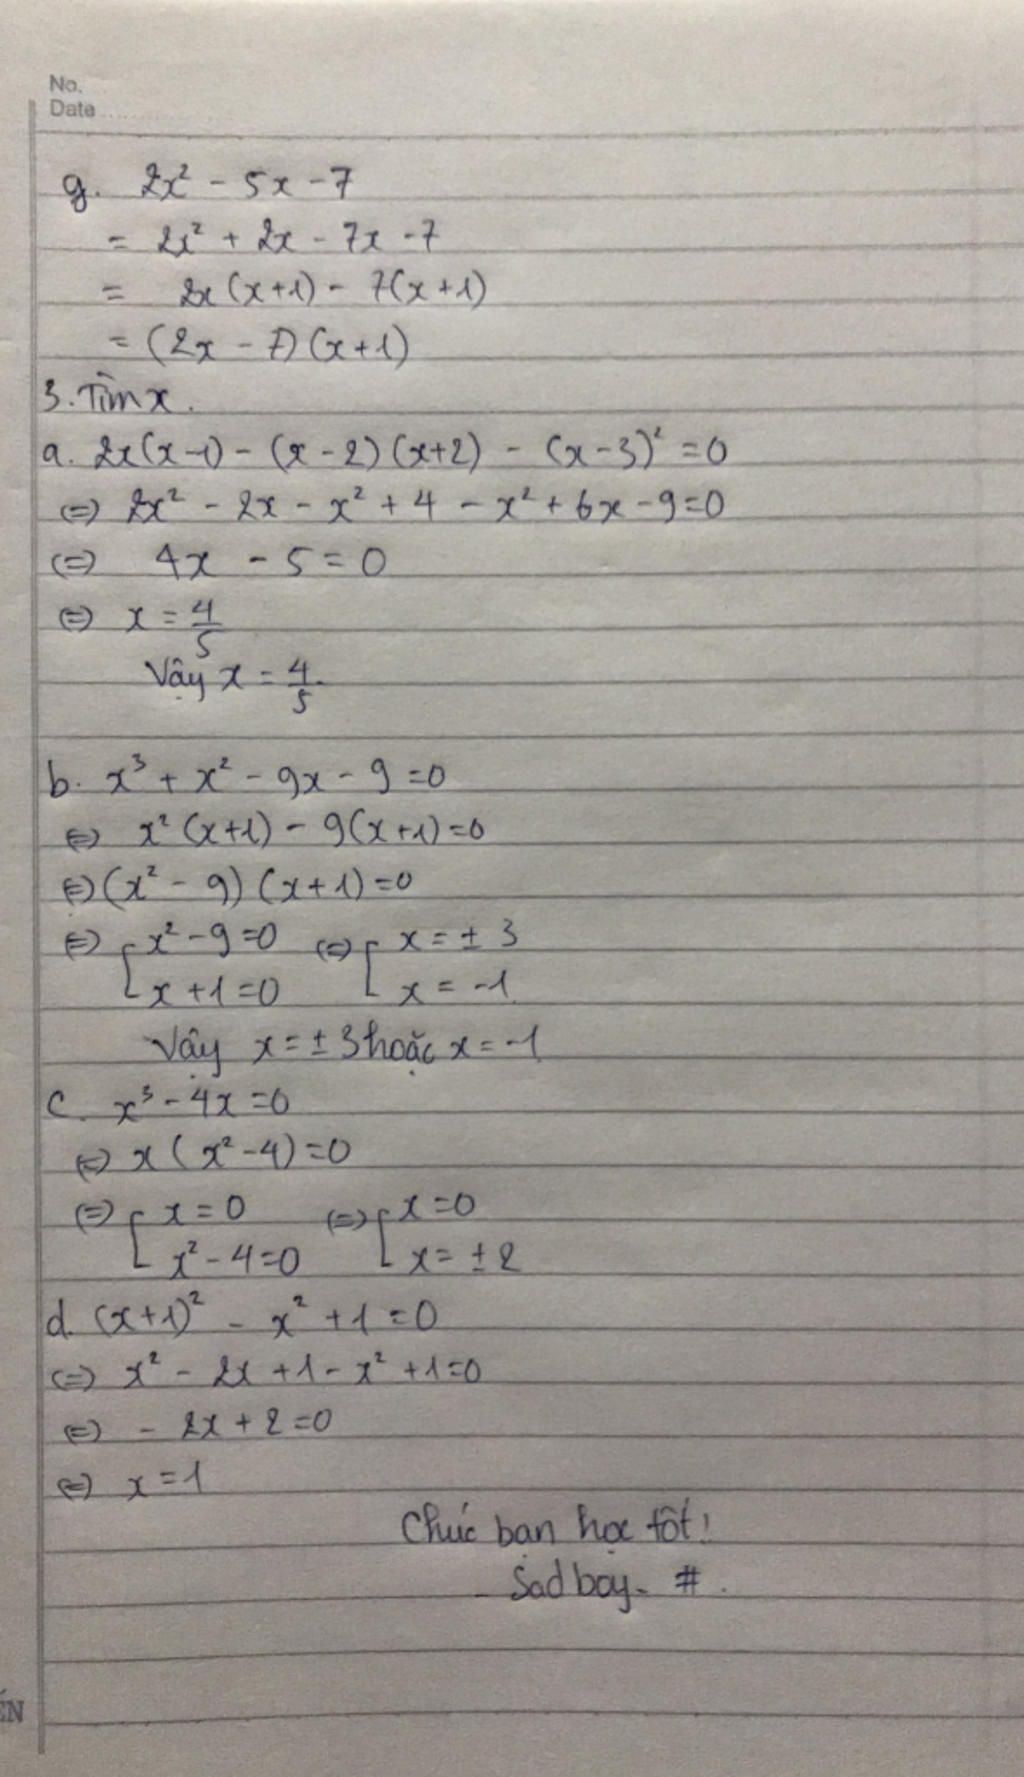 No.
Date
g. 2x² - 5x - 7
= 2x² + 2x - 7x - 7
= 2x(x+1) - 7(x+1)
= (2x - 7)(x+1)
3. Tìm x.
a. 2x(x-1) - (x-2)(x+2) - (x-3)² = 0
(=) 2x² - 2x - x² + 4 - x² + 6x - 9 = 0
(=) 4x - 5 = 0
(=) x = 4/5
Vậy x = 4/5.
b. x³ + x² - 9x - 9 = 0
(=) x²(x+1) - 9(x+1) = 0
(=) (x² - 9)(x+1) = 0
(=) [ x² - 9 = 0 (=) [ x = ± 3
x + 1 = 0 x = -1
Vậy x = ± 3 hoặc x = -1
c. x³ - 4x = 0
(=) x(x² - 4) = 0
(=) [ x = 0 (=) [ x = 0
x² - 4 = 0 x = ± 2
d. (x+1)² - x² + 1 = 0
(=) x² - 2x + 1 - x² + 1 = 0
(=) - 2x + 2 = 0
(=) x = 1
Chúc bạn học tốt!
Sad boy - #.
ÉN